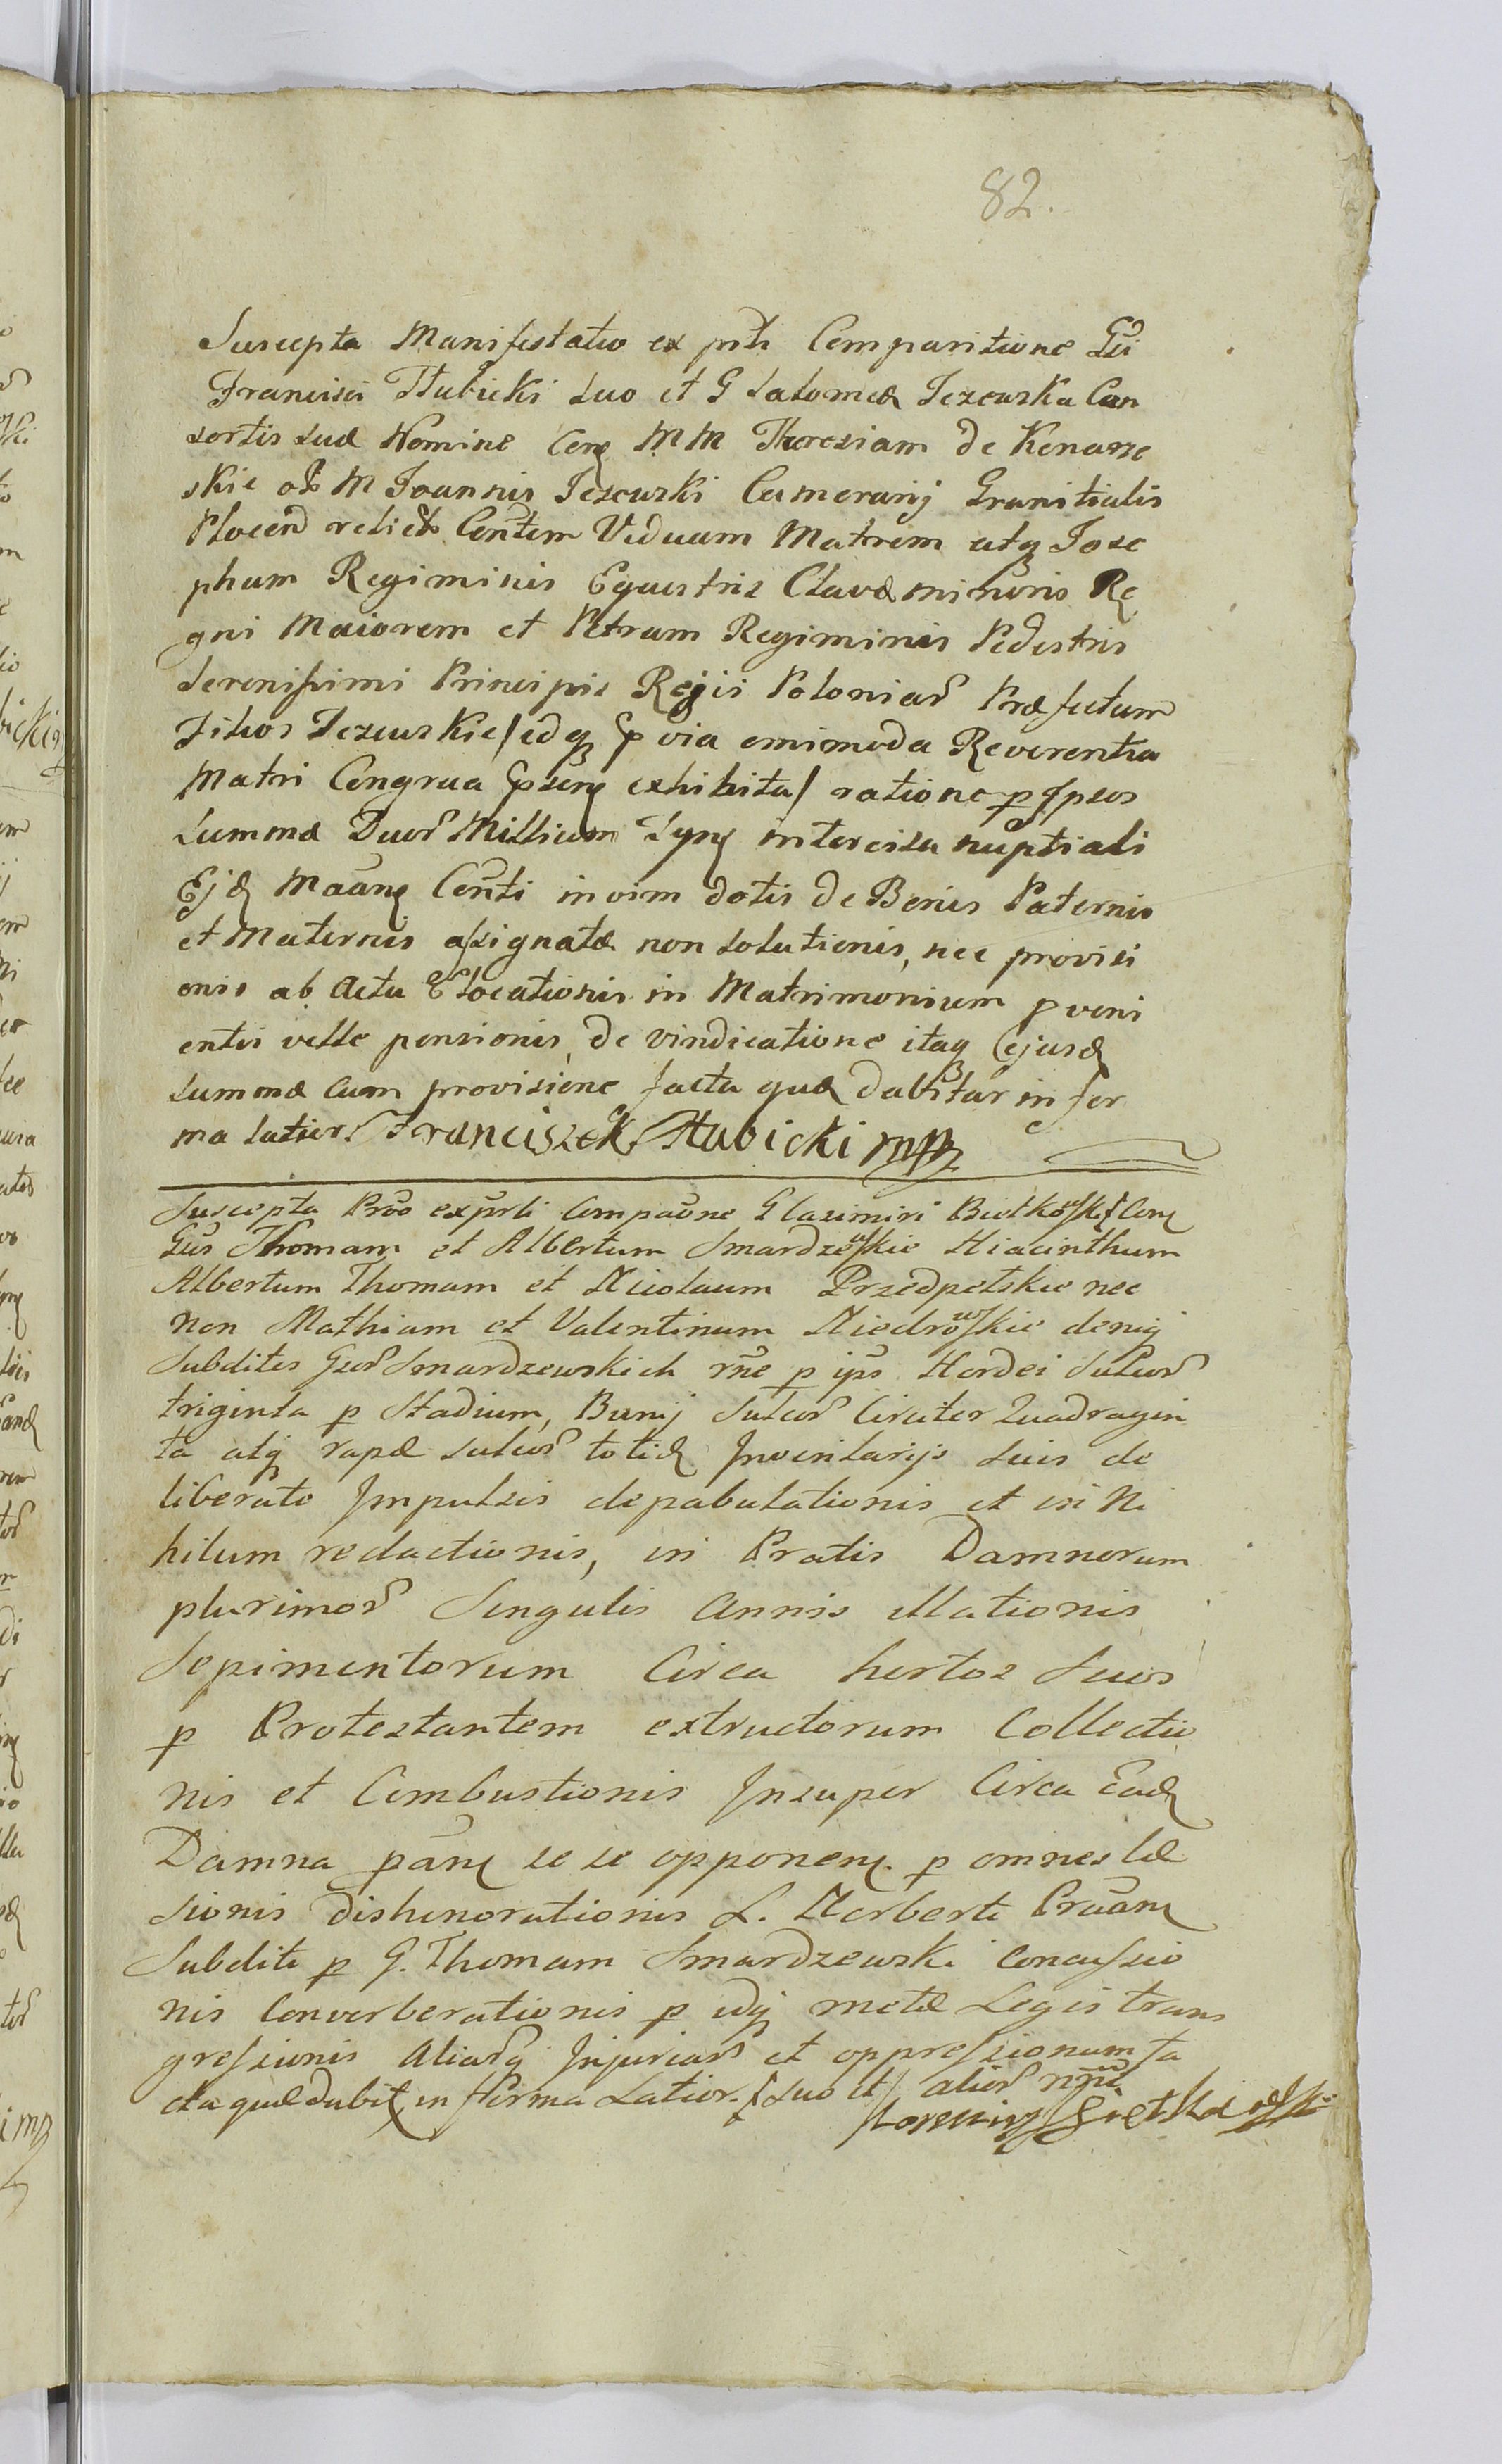 82.
Suscepta Manifestatio ex prti Comparitione Gsi
Francisci Tłubicki suo et G Salomeæ Jezewska Con
sortis suæ Nomine Cong MM Theresiam de Konarze
skie olt M Joannis Jezewski Camerarij Granitialis
Plocen relict Contem Viduam Matrem atq Jose
phum Regiminis Equestris Clavæ minoris Re
gni Maiorem et Petrum Regiminis Pedestris
Serenissimi Principis Regii Poloniar Præfectum
Filios Jezewskie / idq prævia omimoda Reverentia
Matri Congrua exhibita / ratione p Ipsos
Summæ Duor Millium intercisa nuptiali
Ejd Conti in vim dotis de Bonis Paternis
et Maternis assignatæ non solutionis, nec provisi
onis ab Actu Elocationis in Matrimonium p veni
entis velle pensionis, de vindicatione itaq ejusd
summæ cum provisione facta quæ dabitur in for
ma latior. Franciszek Tłubicki mp
Suscepta Pro ex prti Compaone G Casimiri Cong
Gsos Thomam et Albertum Smardzewskie Hiacinthum
Albertum Thomam et Nicolaum Przedpełskie nec
non Mathiam et Valentinum Niedrowskie
Subditos Gsor Smardzewskich rne p ips Hordei Sulcor
triginta p Stadium, Sulcor Circiter Quadragin
ta atq rapæ sulcor totid Inventarijs suis de
liberato Impulsis depabulationis et in Ni
hilum redactionis, in Pratis Damnorum
plurimor Singulis Annis illationis
Sepimentorum Circa hortos Suos
p Protestantem extructorum Collectio
nis et Combustionis Insuper Circa Ead
Damna se se opponen. p omnes læ
sionis dishonorationis L. Norberti
Subditi p G. Thomam Smardzewski Concussio
nis Converberationis p idq metæ Legis trans
gressionis Aliarq Injuriar et oppressionum fa
cta quæ dabit in Forma Latior. / suo et / alior nne